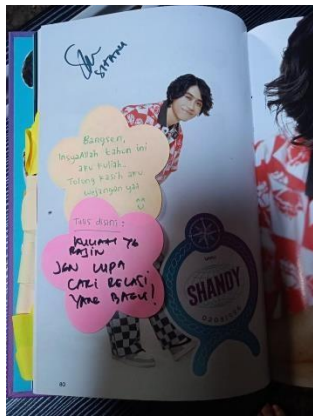 SHANDY
Bangsen,
InsyaAllah tahun ini
aku kuliah.
Tolong kasih aku
wejangan yaa
THIS ADMI:
KULIAH YG
RAJIN
JGN LUPA
CARI RELASI
YANG BAGUS!
SHANDY
40